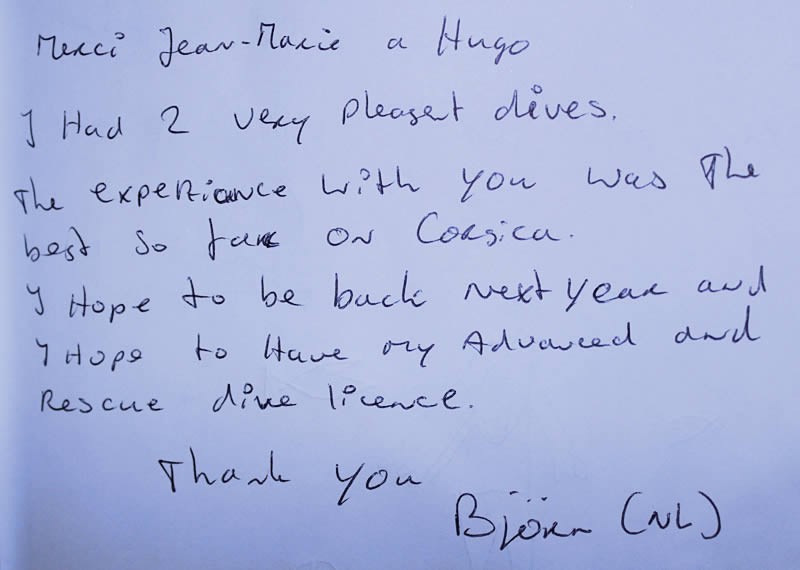 Merci Jean-Marie a Hugo
I Had 2 very pleasent dives.
The experiance with you was The
best so far on Corsica.
I Hope to be back next year and
I Hope to Have my Advanced and
Rescue dive licence.
Thank you
Björn (NL)